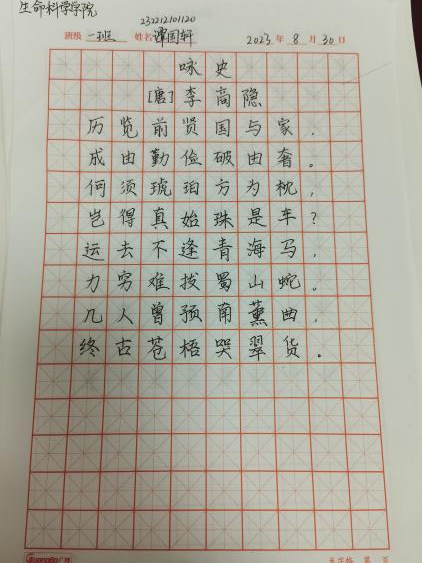 生命科学学院
232212101120
班级 一班 姓名 谭国轩 2023 年 8 月 30 日
咏史
[唐] 李高隐
历览前贤国与家,
成由勤俭破由奢。
何须琥珀方为枕,
岂得真始珠是车?
运去不逢青海马,
力穷难拔蜀山蛇。
几人曾预南薰曲,
终古苍梧哭翠货。
Guangbo 广博
第 页